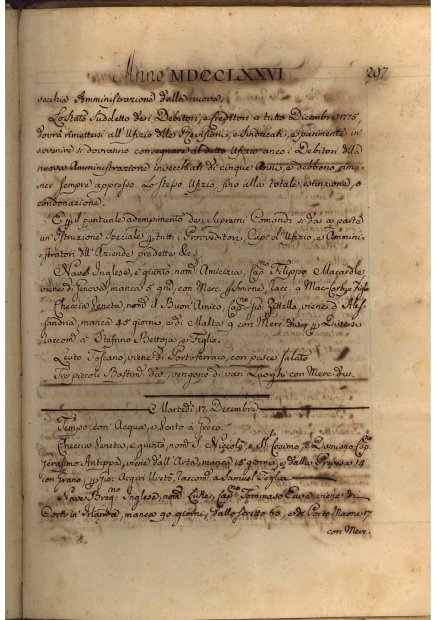 Anno MDCCLXXVI 297
vecchia Amministrazione dalla nuova.
Lo Stato Suddetto dei Debitori, e Creditori a tutto Dicembre 1775
dovrà rimettersi all' Ufizio delle Revisioni, e Sindacati, e parimente in
avvenire si dovranno consegnare al detto Ufizio anco i Debitori della
nuova Amministrazione invecchiati di cinque Anni, e debbono rima:
ner sempre appresso lo stesso Ufizio, fino alla totale estinzione, o
condonazione.
E il puntuale adempimento dei Supremi Comandi si dà a parte
un' Istruzione Speciale tutti i Provveditori, Capi d' Ufizio, e Ammini:
stratori dell' Aziende predette &c.
Nave Inglese, è giunto, nom. Amicizia, Capno Filippo Macardle
viene di Genova, manca 6 gni con Merc. Smirne, Racc. a Mac-Carthy
Checcia Veneta, nom. il Buon' Amico, Capno Gio: viene d' Ales:
sandria, manca 45 giorni, e di Malta 9 con Merc. Diversi
Raccom. a Stefano Bettoja, e Figlio.
Leuto Toscano, viene di Portoferraio, con pesce salato
Tre piccoli Bastim. vengono di vari Luoghi con Merc.
Martedì 17. Decembre
Tempo, con Acqua, e Vento a Greco.
Checcia Veneta, è giunto, nom. S. Niccolò, e Capno
Gerasimo Antippa, viene dall' Arta, manca 15 giorni, e dalla Prevesa 14
con grano, Gio: Argiri raccom. a Samuel
Nave Inglese, nom. Capno Tommaso viene di
Cork in Irlanda, manca 90 giorni, dallo Stretto 60, e di Porto Maone 17
con Merc.